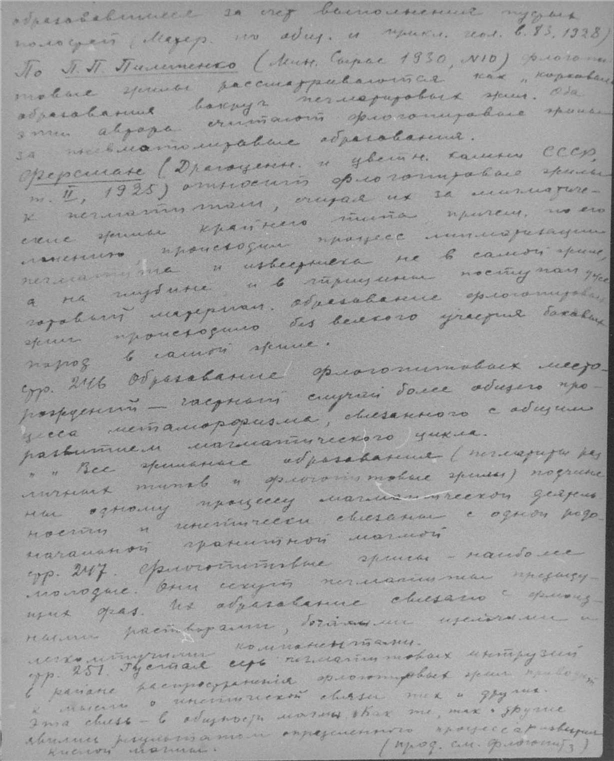 образовавшиеся за счет выполнения пустых
полостей (Матер. по общ. и прикл. геол. в. 83, 1928)
По П.П. Пилипенко (Мин. Сырье 1930, №10) флогопи-
товые жилы рассматриваются как „корковые
образования вокруг пегматитовых жил. Оба
эти автора считают флогопитовые жилы
за пневматолитовые образования.
Ферсман (Драгоценн. и цветн. камни СССР,
т. II, 1925) относит флогопитовые жилы
к пегматитам, считая их за магматиче-
ские жилы крайнего типа причем, по его
мнению происходил процесс
пегматита и известняка не в самой жиле,
а на глубине и в трещины поступал уже
готовый материал. Образование флогопитовых
жил происходило без всякого участия боковых
пород в самой жиле.
стр. 246 Образование флогопитовых место-
рождений — частный случай более общего про-
цесса метаморфизма, связанного с общим
развитием магматического цикла.
" " Все жильные образования (пегматиты раз
личных типов и флогопитовые жилы) подчине
ны одному процессу магматической деятель
ности и генетически связаны с одной родо-
начальной гранитной магмой
стр. 247. Флогопитовые жилы – наиболее
молодые. Они секут пегматиты предыду-
щих фаз. Их образование связано с флюид-
ными растворами, богатыми щелочами и
легколетучими компонентами.
стр. 251 Густая сеть пегматитовых интрузий
в районе распространения флогопитовых жил приводит
к мысли о генетической связи тех и других.
Эта связь – в общности магмы. Как те, так и другие
явились результатом определенного процесса
кислой магмы. (прод. см. флогопит)